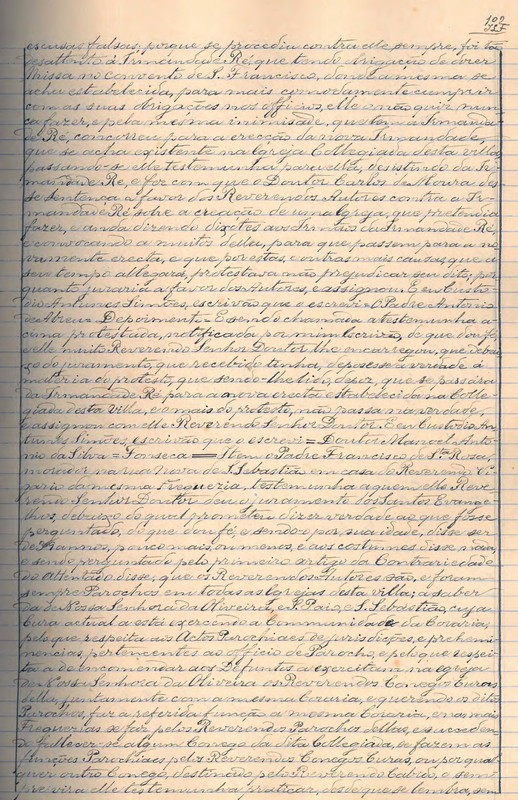 escusas falsas, porque se procedia contra elle sempre, foi tão
desattento á Irmandade Ré, que tendo obrigação de dizer
Missa no convento de S. Francisco, donde a mesma se
acha estabelecida, para mais comodamente cumprir
com as suas obrigações nos officios, elle o não quiz nun
ca fazer, e pela mesma inimisade, que tem á Irmanda
de Ré, concorreu para a erecção da nova Irmandade,
que se acha existente na Igreja Collegiada desta villa,
passando-se elle testemunha para ella, desistindo da Ir
mandade Ré, e fez com que o Doutor Carlos de Moura des
se sentença a favor dos Reverendos Autores contra a Ir
mandade Ré sobre a creação de uma Igreja, que pretendia
fazer, e anda dizendo dizotes aos Irmãos da Irmandade Ré,
e convocando a muitos della, para que passem para a no
vamente erecta, e que por estas, e outras mais causas, que a
seu tempo allegará, protestava não prejudicar seu dito; por
quanto juraria a favor dos Autores, e assignou. E eu Custo
dio Antunes Simões, escrivão que o escrevi. O Padre Antonio
de Abreu. Depoimento. E sendo chamada a testemunha a
cima protestada, notificada por mim Escrivão, de que dou fé,
e elle muito Reverendo Senhor Doutor lhe encarregou, que debai
xo do juramento, que recebido tinha, depozesse a verdade á
materia do protesto, que sendo-lhe lido, disse, que se passára
da Irmandade Ré para a nova erecta estabelecida na Colle
giada desta villa, e o mais do protesto, não passa na verdade,
e assignou com elle Reverendo Senhor Doutor. E eu Custodio An
tunes Simões, escrivão que o escrevi = Doutor Manoel Anto
nio da Silva = Fonseca = Item o Padre Francisco de Sta Rosa,
morador na rua nova de S. Sebastião em casa do Reverendo Vi
gario da mesma Freguezia, testemunha a quem elle Reve
rendo Senhor Doutor deu o juramento dos Santos Evange
lhos, debaixo do qual prometteu dizer verdade ao que fosse
perguntado, do que dou fé, e sendo-o por sua idade, disse ser
de annos, pouco mais, ou menos, e aos costumes disse nada,
e sendo perguntado pelo primeiro artigo da Contrariedade
do Attentado disse, que os Reverendos Autores são, e foram
sempre Parochos em todas as Igrejas desta villa; a saber
da de Nossa Senhora da Oliveira, S. Paio, e S. Sebastião, cuja
Cura actual a está exercendo a Communidade da Coraria,
pelo que respeita aos Actos Parochiaes de jurisdicções, e prehemi
nencias, pertencentes ao officio de Parocho, e pelo que respei
ta a do incomendar aos Defuntos a exercitam na egreja
de Nossa Senhora da Oliveira os Reverendos Conegos Curas
della, juntamente com a mesma Coraria, e querendo os ditos
Parochos, faz a referida função a mesma Coraria, e nas mais
Freguezias se faz pelos Reverendos Parochos dellas, e succeden
do fallecer-se algum Conego da dita Collegiada, se fazem as
funções Parochiaes pelos Reverendos Conegos Curas, ou por qual
quer outro Conego, destinado pelo Reverendo Cabido, e sem
pre vira elle testemunha praticar, desde que se lembra, sem